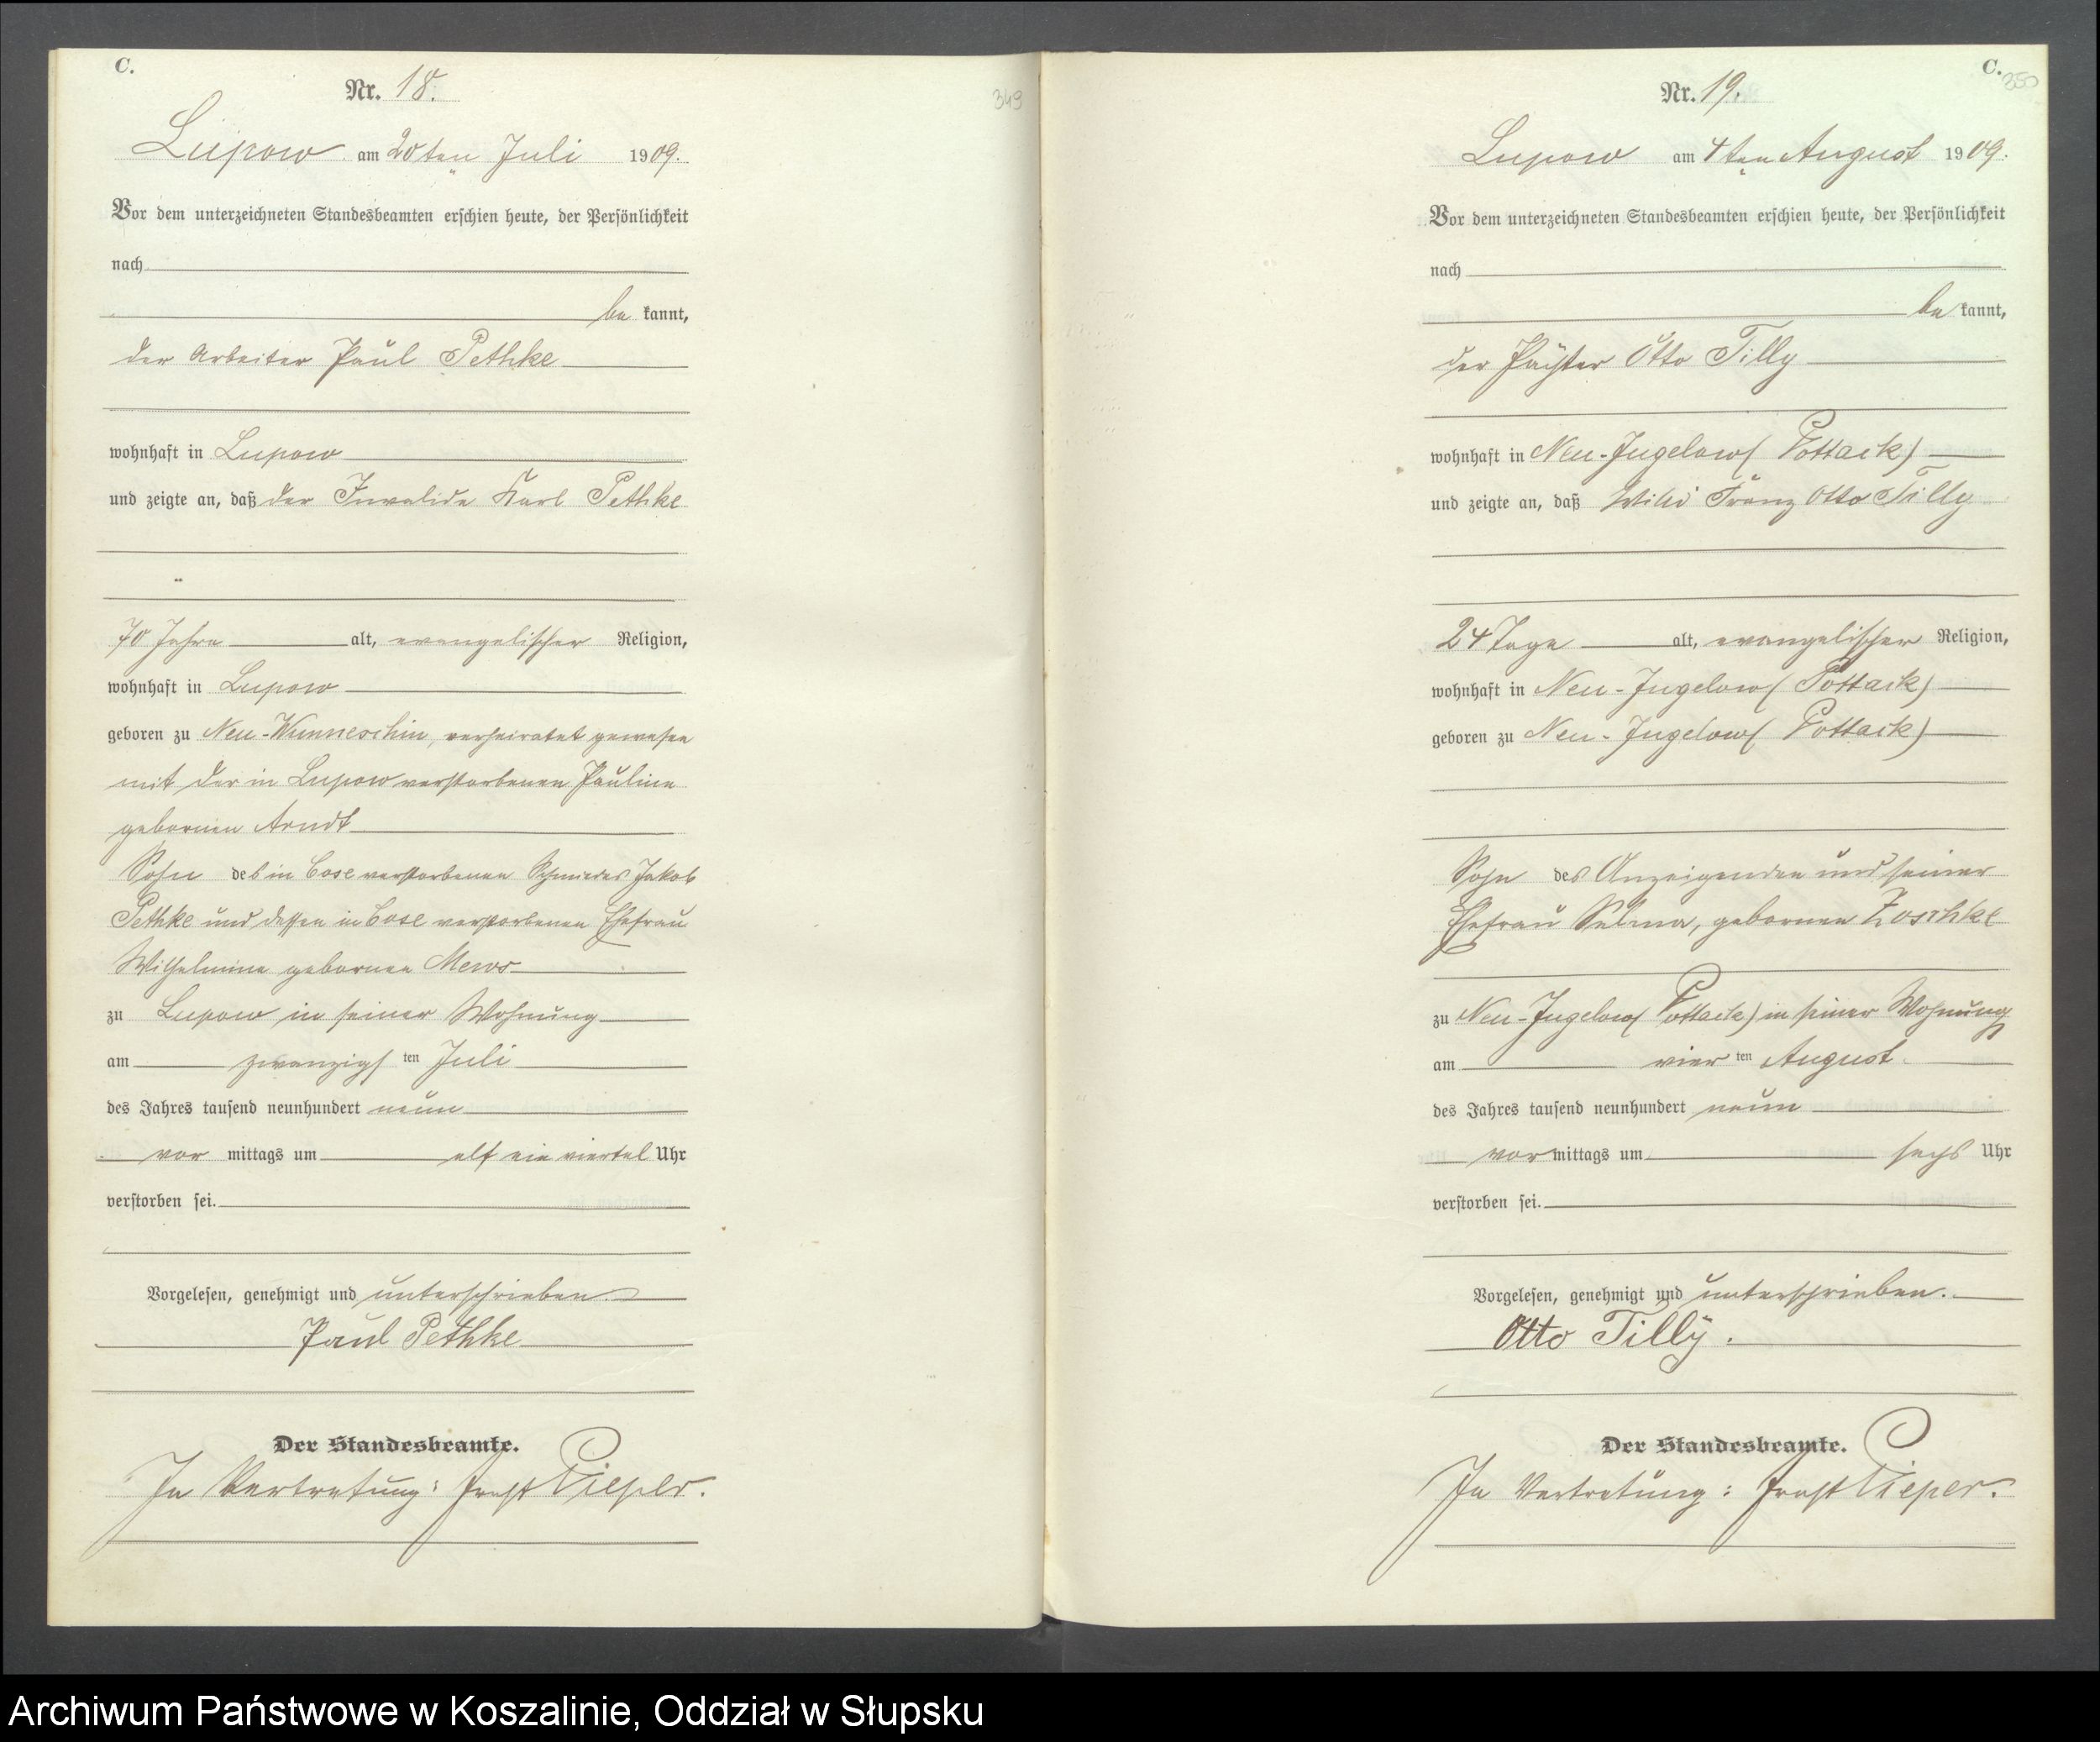 C.
Nr. 18.
349
Lupow am 20ten Juli 1909.
Vor dem unterzeichneten Standesbeamten erschien heute, der Persönlichkeit
nach
be kannt,
der Arbeiter Paul Pethke
wohnhaft in Lupow
und zeigte an, daß der Invalide Karl Pethke
70 Jahre alt, evangelischer Religion,
wohnhaft in Lupow
geboren zu Neu-Wunneschin, verheiratet gewesen
mit der in Lupow verstorbenen Pauline
gebornen Arndt
Sohn des in Bose verstorbenen Schmiedes Jakob
Pethke und dessen in Bose verstorbenen Ehefrau
Wilhelmine gebornen Mews
zu Lupow in seiner Wohnung
am zwanzigsten Juli
des Jahres tausend neunhundert neun
vor mittags um elf ein viertel Uhr
verstorben sei.
Vorgelesen, genehmigt und unterschrieben.
Paul Pethke
Der Standesbeamte.
In Vertretung: Ernst Pieper.
C.
350
Nr. 19.
Lupow am 4ten August 1909.
Vor dem unterzeichneten Standesbeamten erschien heute, der Persönlichkeit
nach
be kannt,
der Pächter Otto Tilly
wohnhaft in Neu-Jugelow (Pottack)
und zeigte an, daß Willi Franz Otto Tilly
24 Tage alt, evangelischer Religion,
wohnhaft in Neu-Jugelow (Pottack)
geboren zu Neu-Jugelow (Pottack)
Sohn des Anzeigenden und seiner
Ehefrau Selma, gebornen Zoschke
zu Neu-Jugelow (Pottack) in seiner Wohnung
am vier ten August
des Jahres tausend neunhundert neun
vor mittags um sechs Uhr
verstorben sei.
Vorgelesen, genehmigt und unterschrieben.
Otto Tilly.
Der Standesbeamte.
In Vertretung: Ernst Pieper.
Archiwum Państwowe w Koszalinie, Oddział w Słupsku